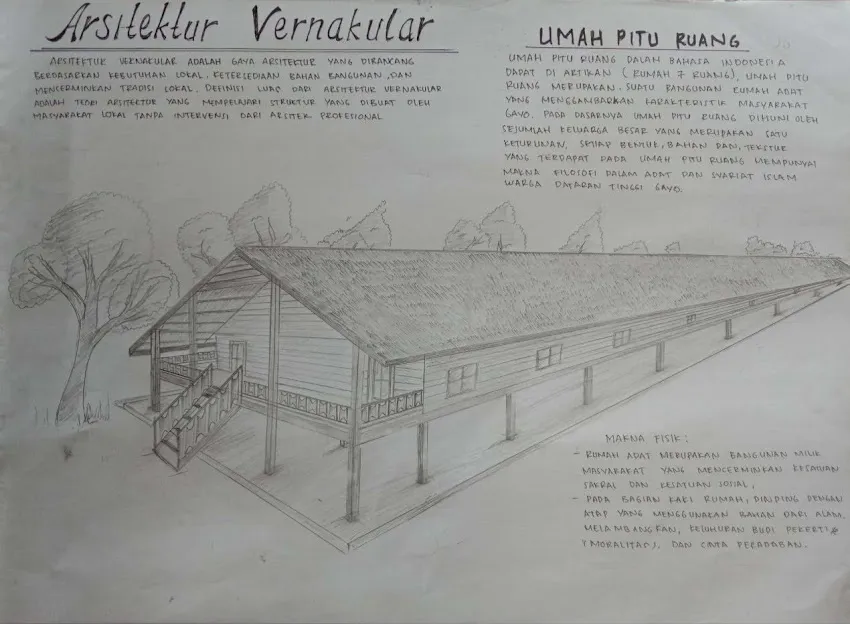 Arsitektur Vernakular
ARSITEKTUR VERNAKULAR ADALAH GAYA ARSITEKTUR YANG DIRANCANG
BERDASARKAN KEBUTUHAN LOKAL, KETERSEDIAAN BAHAN BANGUNAN, DAN
MENCERMINKAN TRADISI LOKAL. DEFINISI LUAS DARI ARSITEKTUR VERNAKULAR
ADALAH TEORI ARSITEKTUR YANG MEMPELAJARI STRUKTUR YANG DIBUAT OLEH
MASYARAKAT LOKAL TANPA INTERVENSI DARI ARSITEK PROFESIONAL
UMAH PITU RUANG
UMAH PITU RUANG DALAM BAHASA INDONESIA
DAPAT DI ARTIKAN (RUMAH 7 RUANG), UMAH PITU
RUANG MERUPAKAN SUATU BANGUNAN RUMAH ADAT
YANG MENGGAMBARKAN KARAKTERISTIK MASYARAKAT
GAYO. PADA DASARNYA UMAH PITU RUANG DIHUNI OLEH
SEJUMLAH KELUARGA BESAR YANG MERUPAKAN SATU
KETURUNAN, SETIAP BENTUK, BAHAN DAN, TEKSTUR
YANG TERDAPAT PADA UMAH PITU RUANG MEMPUNYAI
MAKNA FILOSOFI DALAM ADAT DAN SYARIAT ISLAM
WARGA DATARAN TINGGI GAYO.
MAKNA FISIK :
- RUMAH ADAT MERUPAKAN BANGUNAN MILIK
MASYARAKAT YANG MENCERMINKAN KESATUAN
SAKRAL DAN KESATUAN SOSIAL,
- PADA BAGIAN KAKI RUMAH, DINDING DENGAN
ATAP YANG MENGGUNAKAN BAHAN DARI ALAM.
MELAMBANGKAN, KELUHURAN BUDI PEKERTI
(MORALITAS), DAN CINTA PERADABAN.